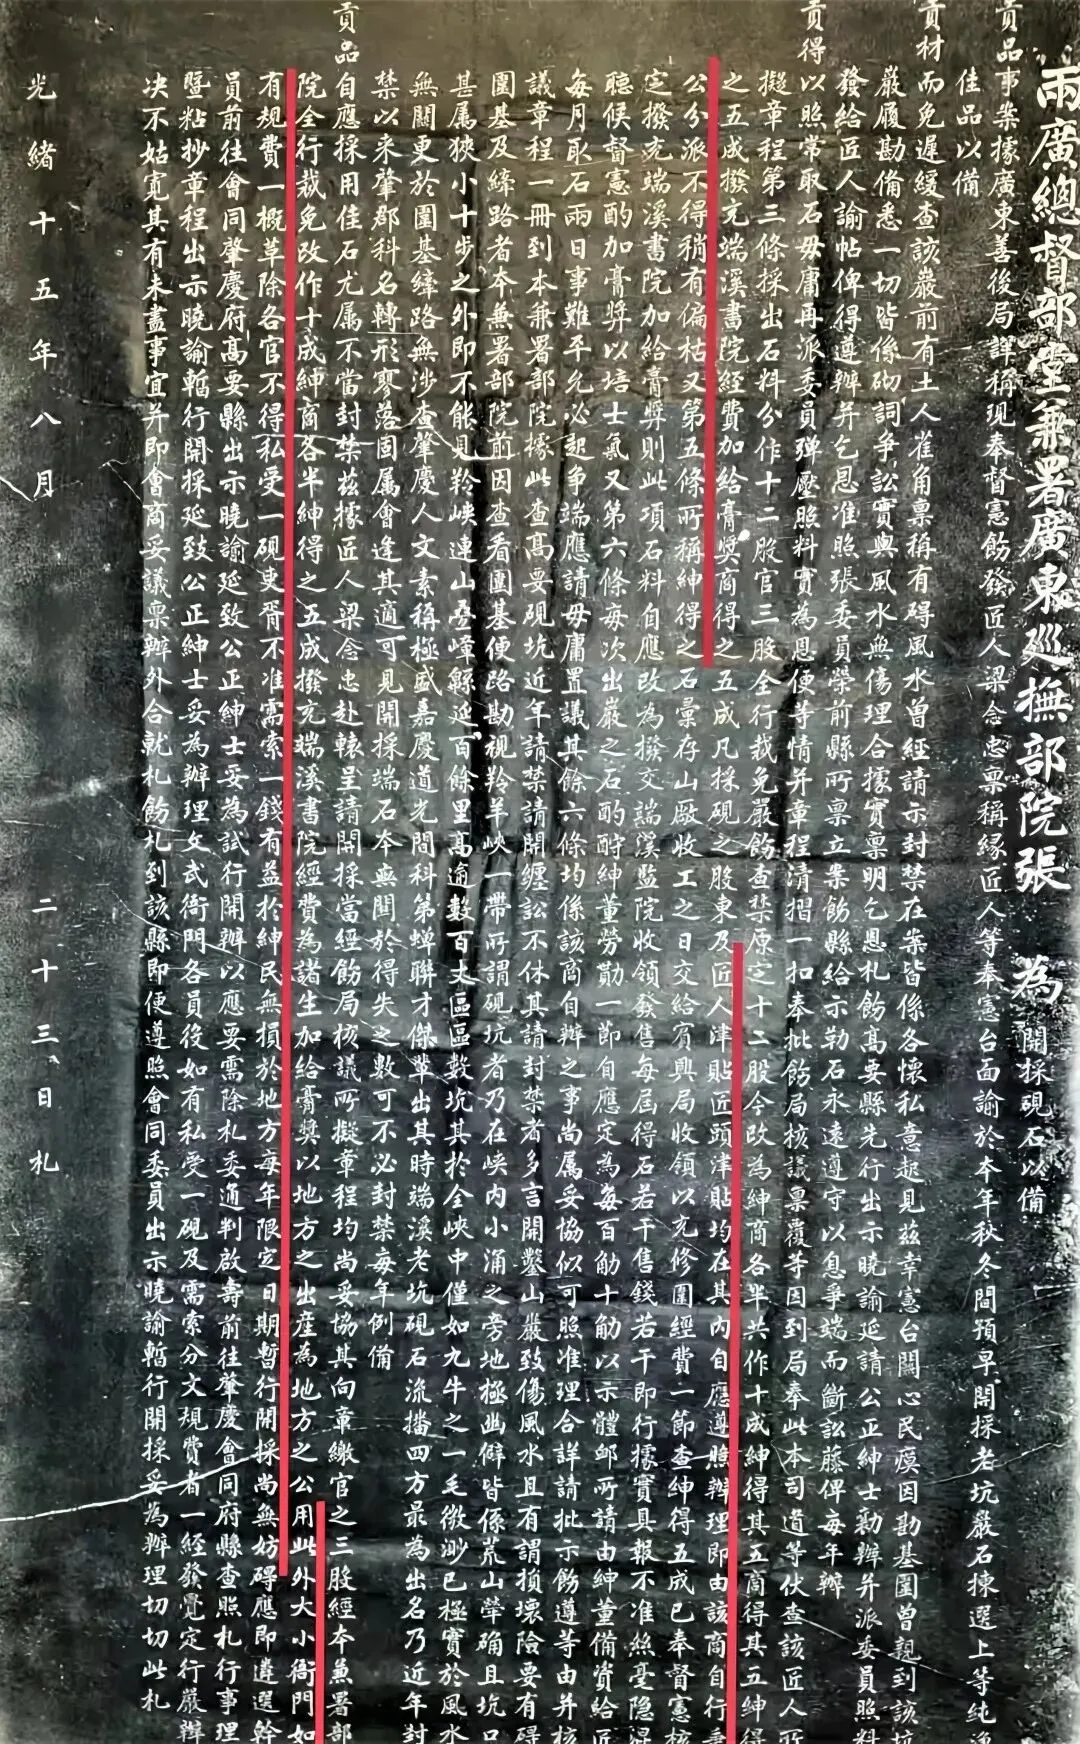 兩廣總督部堂兼署廣東巡撫部院張　為　開採硯石以備
貢品事案據廣東善後局詳稱現奉督憲飭發匠人梁念忠稟稱緣匠人等奉憲台面諭於本年秋冬間預早開採老坑嚴石揀選上等純
佳品以備
貢材而免遲緩查該巖前有土人雀角稟稱有碍風水曾經請示封禁在案皆係各懷私意起見茲幸憲台關心民瘼因勘基圍曾親到該坑
嚴履勘備悉一切皆係砌詞爭訟實與風水無傷理合據實稟明乞恩札飭高要縣先行出示曉諭延請公正紳士勷辦并派委員照料
發給匠人諭帖俾得遵辦并乞恩准照張委員榮前縣所稟立案飭縣給示勒石永遠遵守以息爭端而斷訟藤俾每年辦
貢得以照常取石毋庸再派委員彈壓照料實為恩便等情并章程清摺一扣奉批飭局核議稟覆等因到局奉此本司道等伏查該匠人所
擬章程第三條採出石料分作十二股官三股全行裁免嚴飭查禁原定十二股今改為紳商各半共作十成紳得其五商得其五紳得
之五成撥充端溪書院經費加給膏獎商得之五成凡採硯之股東及匠人津貼匠頭津貼均在其內自應遵照辦理即由該商自行秉
公分派不得稍有偏枯又第五條所稱紳得之石彙存山廠收工之日交給賓興局收領以充修圍經費一節查紳得五成已奉督憲核
定撥充端溪書院加給膏獎則此項石料自應改為撥交端溪監院收領發售每屆得石若干售錢若干即行據實具報不准絲毫隱混
聽候督憲酌加膏獎以培士氣又第六條每次出巖之石酌酧紳董勞勩一節自應定為每百觔十觔以示體卹所請由紳董備資給匠
每月取石兩日事難平允必起爭端應請毋庸置議其餘六條均係該商自辦之事尚属妥協似可照准理合詳請批示飭遵等由并核
議章程一冊到本兼署部院據此查高要硯坑近年請禁請開纏訟不休其請封禁者多言開鑿山嚴致傷風水且有謂損壞險要有碍
圍基及縴路者本兼署部院前因查看圍基便路勘視羚羊峽一帶所謂硯坑者乃在峽内小涌之旁地極幽僻皆係荒山犖确且坑口
甚属狹小十步之外即不能見羚峽連山叠嶂緜延百餘里高逾數百丈區區數坑其於全峽中僅如九牛之一毛微渺已極實於風水
無關更於圍基縴路無涉查肇慶人文素稱極盛嘉慶道光間科第蟬聯才傑軰出其時端溪老坑硯石流播四方最為出名乃近年封
禁以來肇郡科名轉形寥落固属會逢其適可見開採端石本無關於得失之數可不必封禁每年例備
貢品自應採用佳石尤属不當封禁茲據匠人梁念忠赴轅呈請開採當經飭局核議所擬章程均尚妥協其向章繳官之三股經本兼署部
院全行裁免改作十成紳商各半紳得之五成撥充端溪書院經費為諸生加給膏獎以地方之出產為地方之公用此外大小衙門如
有規費一概革除各官不得私受一硯吏胥不准需索一錢有益於紳民無損於地方每年限定日期暫行開採尚無妨碍應即遴選幹
員前往會同肇慶府高要縣出示曉諭延致公正紳士妥為試行開辦以應要需除札委通判啟壽前往肇慶會同府縣查照札行事理
暨粘抄章程出示曉諭暫行開採延致公正紳士妥為辦理文武衙門各員役如有私受一硯及需索分文規費者一經發覺定行嚴辦
决不姑寬其有未盡事宜并即會商妥議稟辦外合就札飭札到該縣即便遵照會同委員出示曉諭暫行開採妥為辦理切切此札
光緒十五年八月　二十三日札